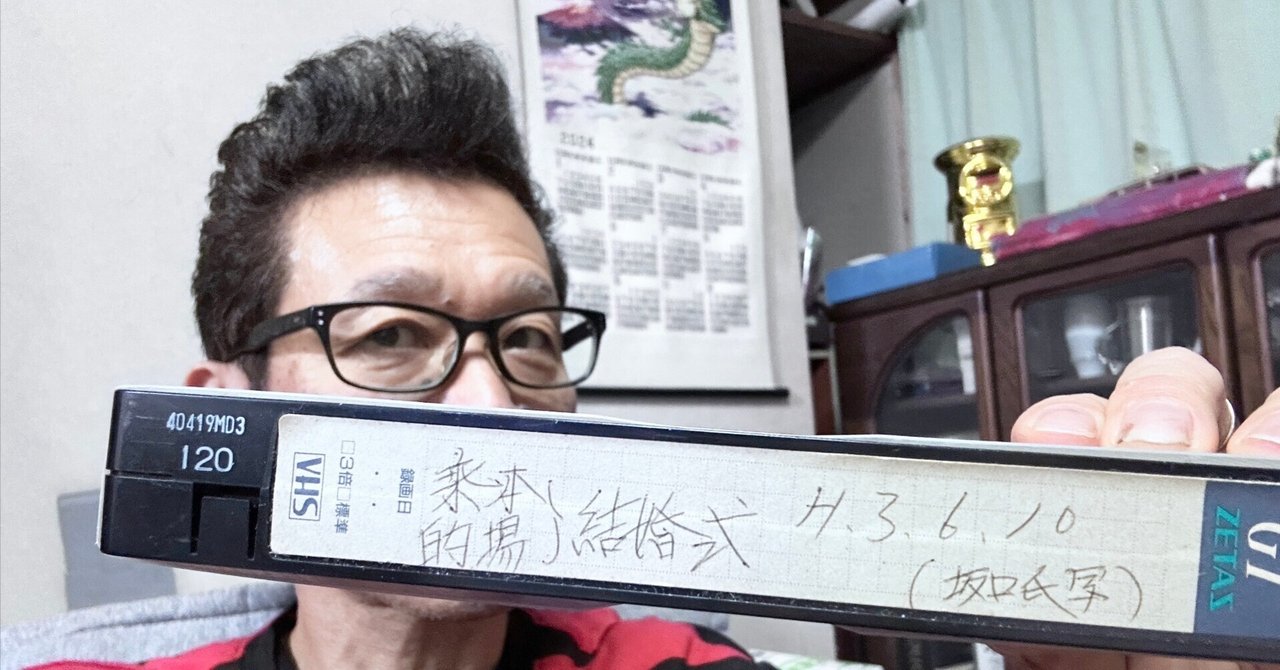 2024
40419MD3
120
VHS
□3倍□標準
録画日
乗本
的場
結婚式
H.3.6.10
(坂口氏写)
GI
ZETAS